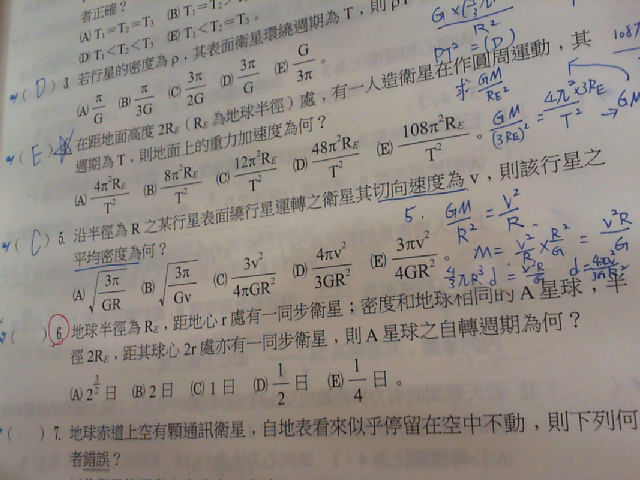 者正確？
(A) T₁=T₂=T₃ (B) T₁=T₂>
(D) T₁<T₂<T₃ (E) T₁<T₂=T₃。
(D) 3. 若行星的密度為ρ，其表面衛星環繞週期為T，則ρT
(A) π/G (B) π/3G (C) 3π/2G (D) 3π/G (E) G/3π。
R²
求 GM/R_E²
(E) 在距地面高度 2R_E（R_E 為地球半徑）處，有一人造衛星在作圓周運動，其
週期為T，則地面上的重力加速度為何？
(A) 4π²R_E/T² (B) 8π²R_E/T² (C) 12π²R_E/T² (D) 48π²R_E/T² (E) 108π²R_E/T²。
GM/(3R_E)² = 4π²×3R_E/T² → GM
(C) 5. 沿半徑為 R 之某行星表面繞行星運轉之衛星其切向速度為 v，則該行星之
平均密度為何？
(A) √(3π/GR) (B) √(3π/Gv) (C) 3v²/4πGR² (D) 4πv²/3GR² (E) 3πv²/4GR²。
5. GM/R² = V²/R
M = V²/R × R²/G = V²R/G
4/3πR³d = V²R/G
( ) 6. 地球半徑為 R_E，距地心 r 處有一同步衛星；密度和地球相同的 A 星球，半
徑 2R_E，距其球心 2r 處亦有一同步衛星，則 A 星球之自轉週期為何？
(A) 2^(3/2) 日 (B) 2 日 (C) 1 日 (D) 1/2 日 (E) 1/4 日。
( ) 7. 地球赤道上空有顆通訊衛星，自地表看來似乎停留在空中不動，則下列何
者錯誤？